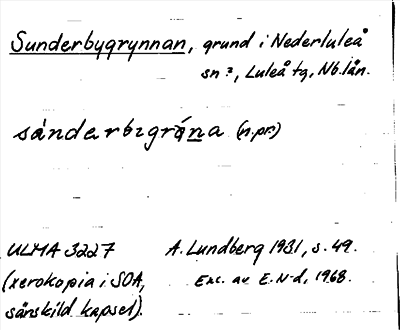 Sunderbygrynnan, grund i Nederluleå
sn?, Luleå tg, Nb. län.
sánderbıgrǻna (n.pr.)
ULMA 3227 A. Lundberg 1931, s. 49.
(xerokopia i SOA, Exc. av E. N-d, 1968.
särskild kapsel).